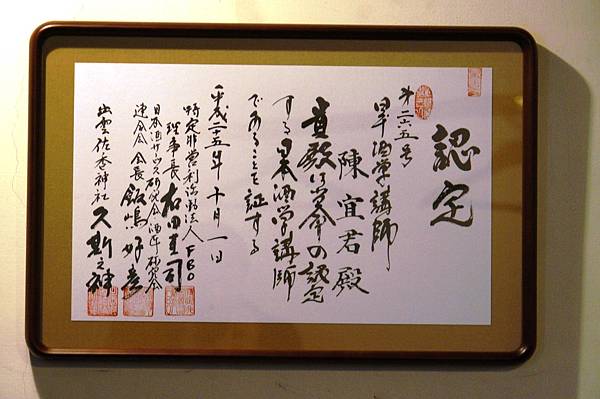 認定
第二六五号
日本酒学講師
陳宜君殿
貴殿は当会の認定
する日本酒学講師
であることを証する
平成二十五年十月一日
特定非営利活動法人FBO
理事長 右田圭司
日本酒サービス研究会酒匠研究会
連合会 会長 飯嶋好彦
出雲佐香神社 久斯之神